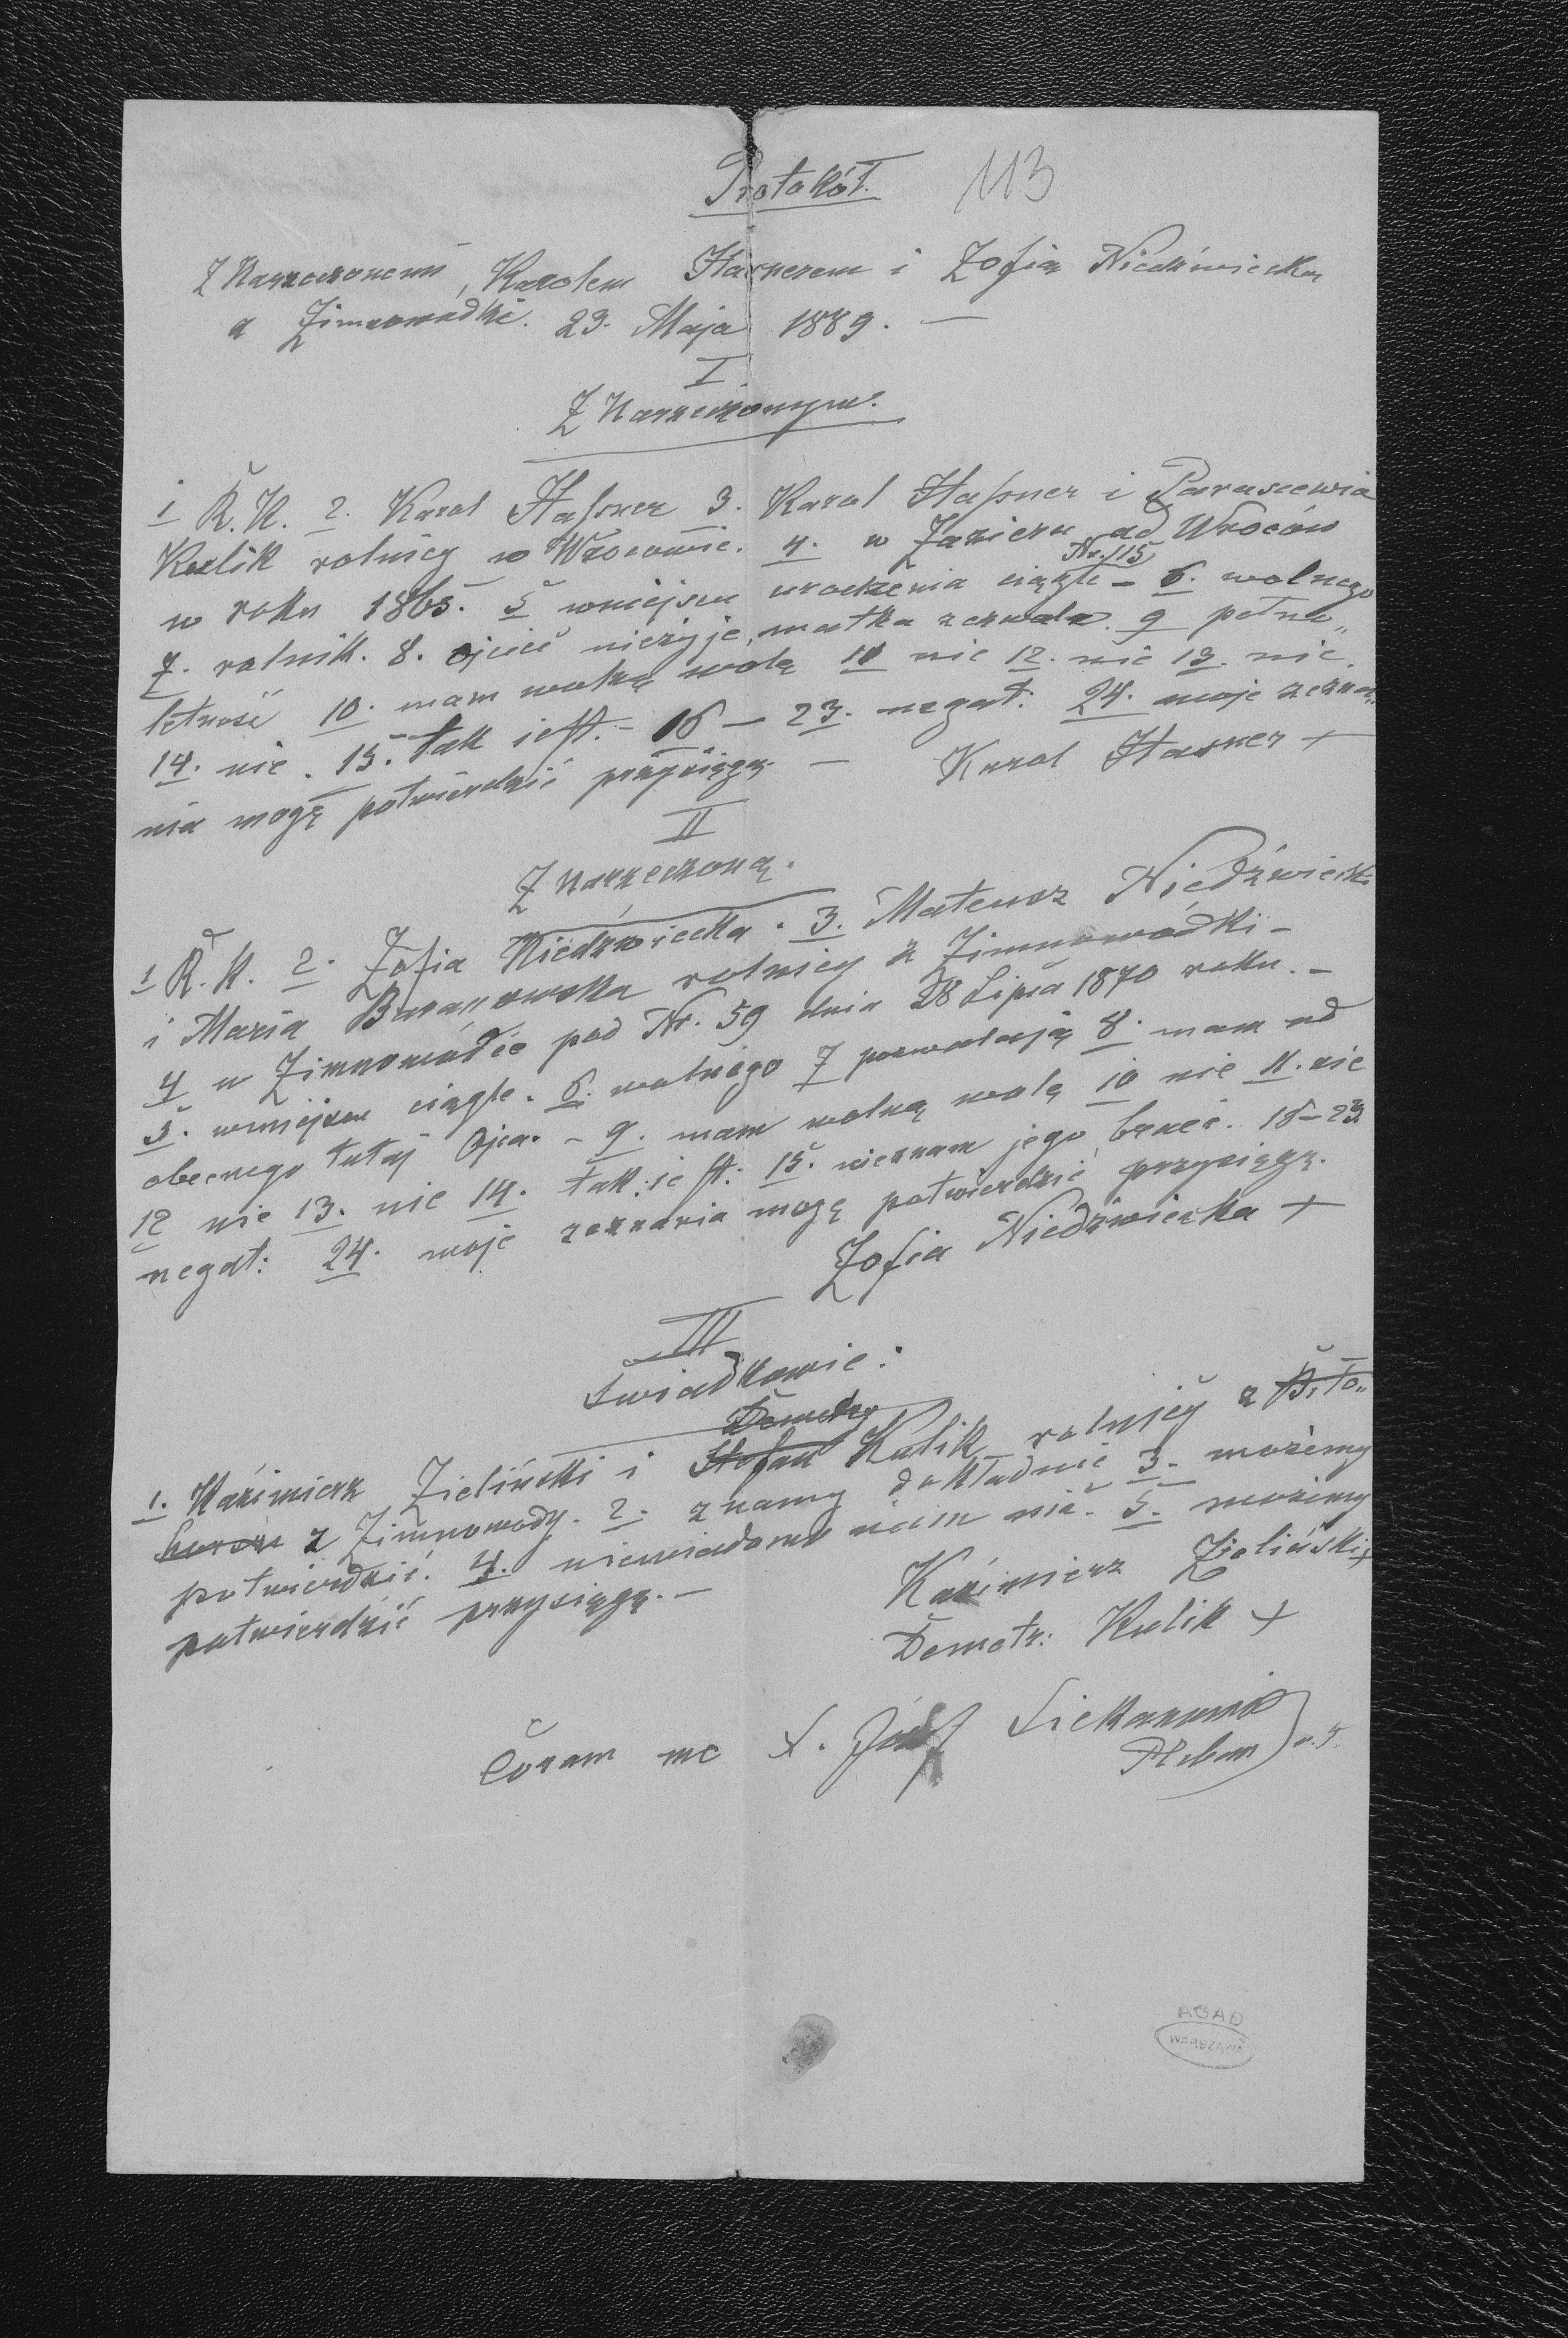 Protokół. 113
Z Narzeczonemi, Karolem Hasnerem i Zofią Niedźwiecką
z Zimnowódki. 23. Maja 1889. —
I
Z Narzeczonym.
1 R.K. 2. Karol Hasner 3. Karol Hasner i Parascewia
Kulik rolnicy w Wrocowie. 4. w Zarieru ad Wroców
Nr. 115
w roku 1865. 5 wmiejscu urodzenia ciągle – 6. wolnego
7. rolnik. 8. ojciec nieżyje, matka zezwala. 9 pełno„
letność 10. mam wolną wolę 11 nie 12. nie 13. nie.
14. nie. 15. tak jest. – 16 – 23. negat: 24. moje zezna„
nia mogę potwierdzić przysięgą. — Karol Hasner +
II
Z Narzeczoną.
1 R.K. 2. Zofia Niedźwiecka. 3. Mateusz Niedźwiecki
i Maria Baranowska rolnicy z Zimnowódki –
4 w Zimnowódce pod Nr. 59 dnia 28 Lipca 1870 roku. –
5. wmiejscu ciągle. 6. wolnego 7 pozwalają 8. mam od
obecnego tutaj Ojca. – 9. mam wolną wolę 10 nie 11. nie
12 nie 13. nie 14. tak jest. 15. nieznam jego braci. 16–23
negat: 24. moje zeznania mogę potwierdzić przysięgą.
Zofia Niedźwiecka +
III
Świadkowie:
Demetry
1. Kaźimierz Zieliński i Stefan Kulik rolnicy z
z Zimnowody. 2. znamy dokładnie 3. możemy
potwierdzić. 4. niewiadomo nam nic. 5. możemy
potwierdzić przysięgą. – Kaźimierz Zieliński +
Demetr: Kulik +
Coram me X. Józef
Pleban
AGAD
WARSZAWA